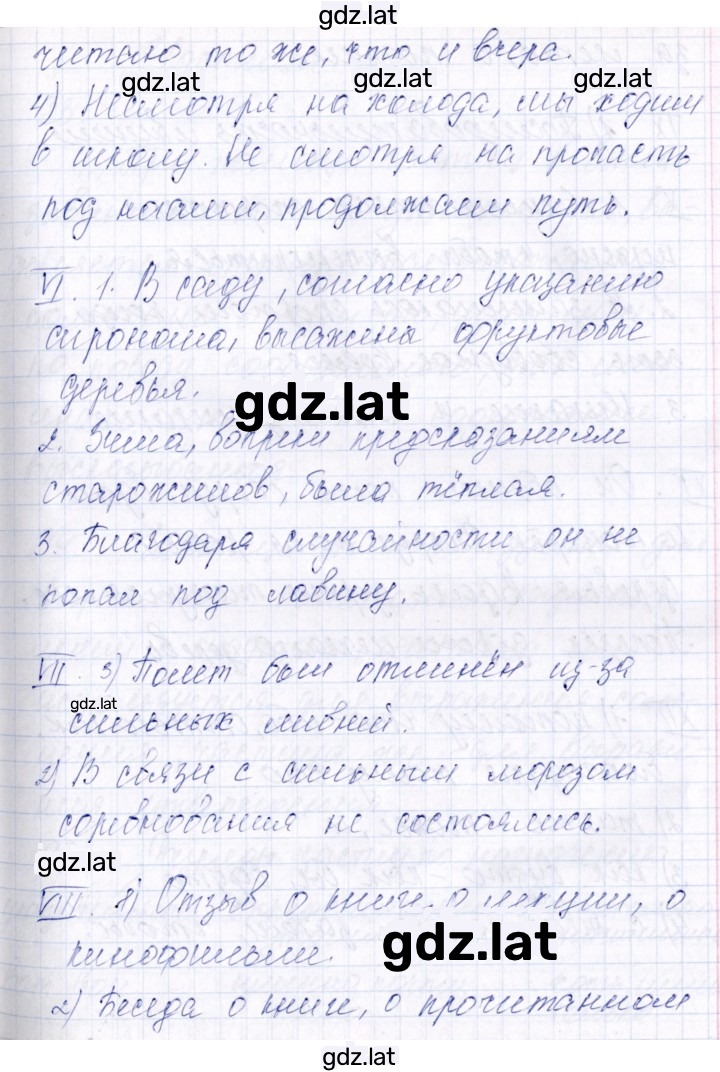 gdz.lat
читаю то же, что и вчера.
gdz.lat gdz.lat gdz.lat
4) Несмотря на холода, мы ходим
в школу. Не смотря на пропасть
под ногами, продолжаем путь.
VI. 1. В саду, согласно указанию
агронома, высажены фруктовые
деревья.
gdz.lat
2. Зима, вопреки предсказаниям
старожилов, была тёплая.
3. Благодаря случайности он не
попал под лавину.
VII. 3) Полет был отменён из-за
gdz.lat
сильных ливней.
2) В связи с сильным морозом
соревнования не состоялись.
gdz.lat
VIII. 1) Отзыв о книге, о лекции, о
gdz.lat
кинофильме.
2) Беседа о книге, о прочитанном
gdz.lat